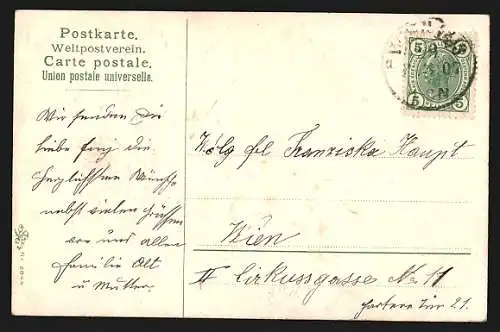 Postkarte.
Weltpostverein.
Carte postale.
Union postale universelle.
5 5
5 5
Wir senden Die
liebe die
herzlichsten Wünsche
nebst vielen Grüßen
von uns Allen
Familie Alt
u Mutter.
Wolg frl. Franziska Haupt
Wien
II Cirkussgasse No 11
Tür 21.